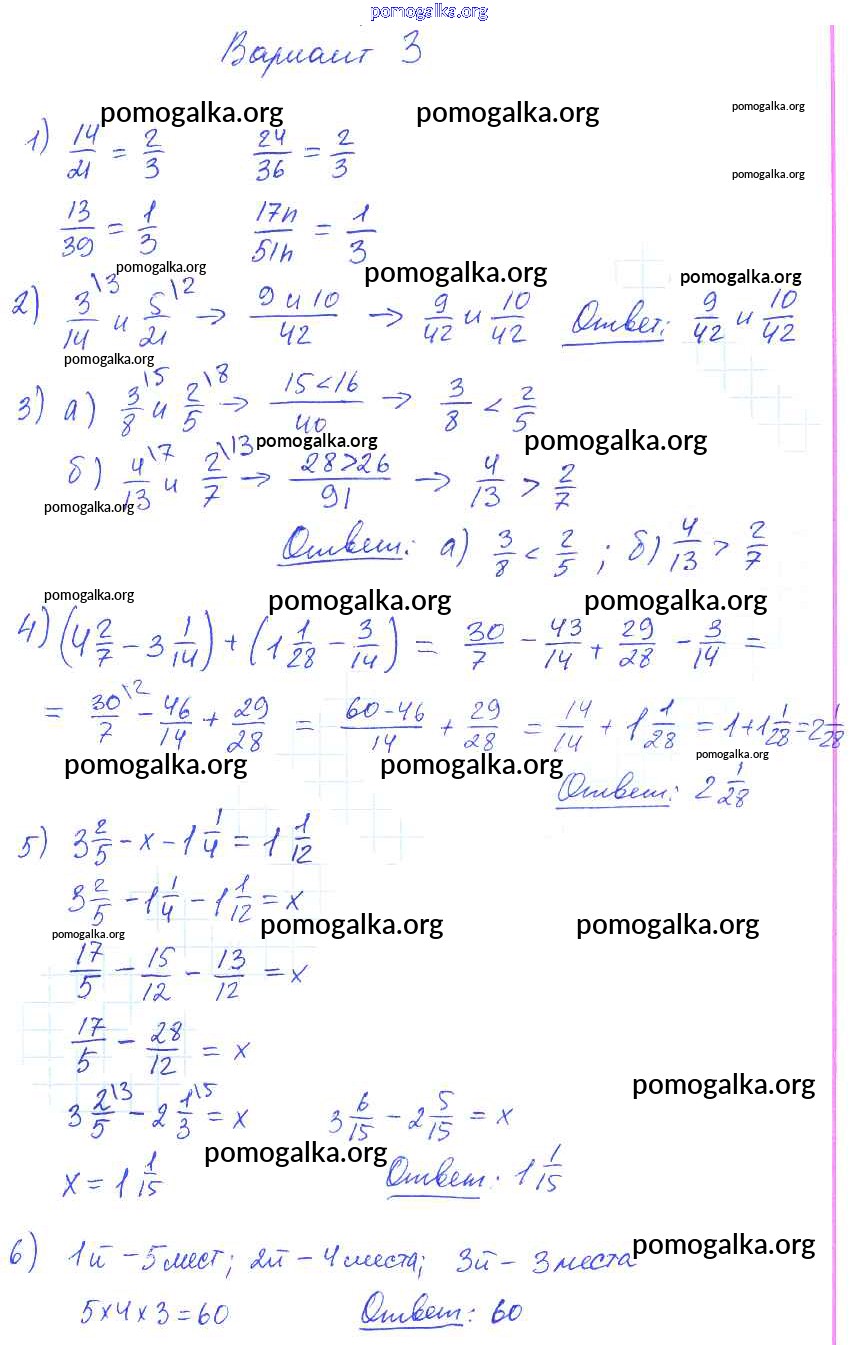 pomogalka.org
Вариант 3
pomogalka.org pomogalka.org pomogalka.org
1) 14/21 = 2/3 24/36 = 2/3
pomogalka.org
13/39 = 1/3 17n/51n = 1/3
pomogalka.org pomogalka.org pomogalka.org
2) 3/14 \3 и 5/21 \2 → 9 и 10/42 → 9/42 и 10/42 Ответ: 9/42 и 10/42
pomogalka.org
3) а) 3/8 \5 и 2/5 \8 → 15<16/40 → 3/8 < 2/5
pomogalka.org pomogalka.org
б) 4/13 \7 и 2/7 \13 → 28>26/91 → 4/13 > 2/7
pomogalka.org
Ответ: а) 3/8 < 2/5 ; б) 4/13 > 2/7
pomogalka.org pomogalka.org pomogalka.org
4) (4 2/7 - 3 1/14) + (1 1/28 - 3/14) = 30/7 - 43/14 + 29/28 - 3/14 =
= 30/7 \2 - 46/14 + 29/28 = 60-46/14 + 29/28 = 14/14 + 1 1/28 = 1+1 1/28 = 2 1/28
pomogalka.org pomogalka.org pomogalka.org
Ответ: 2 1/28
5) 3 2/5 - x - 1 1/4 = 1 1/12
3 2/5 - 1 1/4 - 1 1/12 = x
pomogalka.org pomogalka.org pomogalka.org
17/5 - 15/12 - 13/12 = x
17/5 - 28/12 = x
pomogalka.org
3 2/5 \3 - 2 1/3 \5 = x 3 6/15 - 2 5/15 = x
pomogalka.org
x = 1 1/15 Ответ: 1 1/15
pomogalka.org
6) 1й - 5 мест; 2й - 4 места; 3й - 3 места
5×4×3=60 Ответ: 60